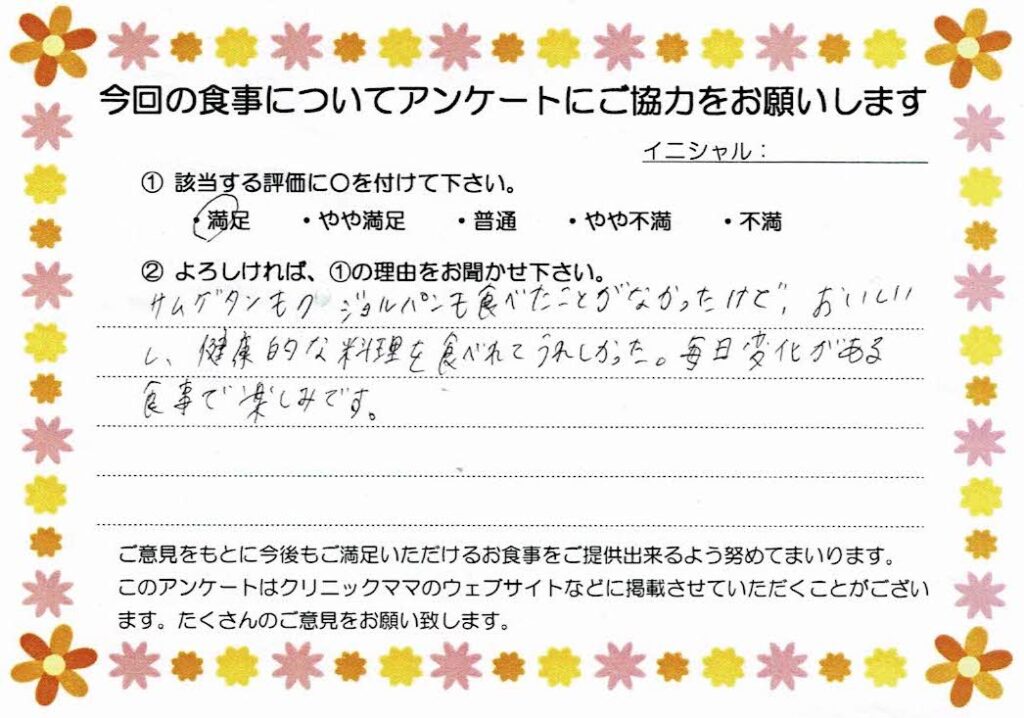 今回の食事についてアンケートにご協力をお願いします
イニシャル：
① 該当する評価に〇を付けて下さい。
・満足 ・やや満足 ・普通 ・やや不満 ・不満
② よろしければ、①の理由をお聞かせ下さい。
サムゲタンもク ジョルパンも食べたことがなかったけど、おいしい
し、健康的な料理を食べれてうれしかった。毎日変化がある
食事で楽しみです。
ご意見をもとに今後もご満足いただけるお食事をご提供出来るよう努めてまいります。
このアンケートはクリニックママのウェブサイトなどに掲載させていただくことがござい
ます。たくさんのご意見をお願い致します。